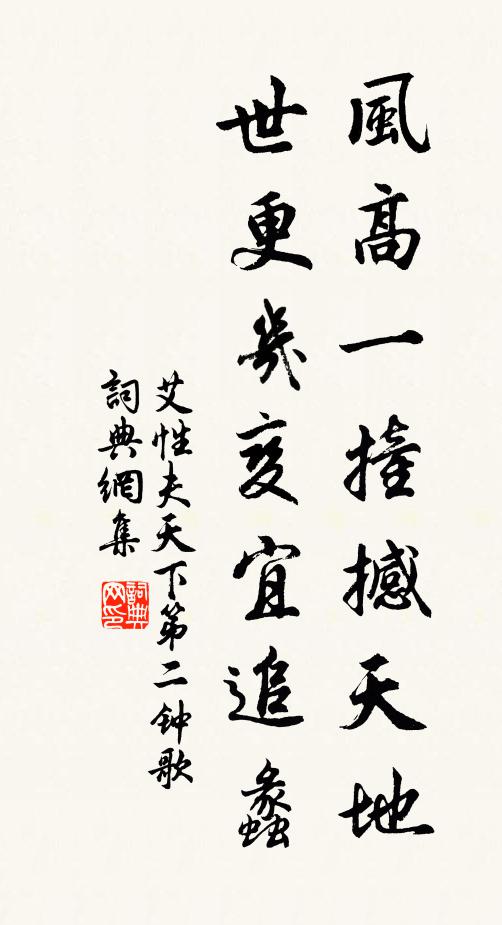 風高一撞撼天地
世更幾变宜追蠡
艾性夫天下第二钟歌
詞典網集
詞典网印